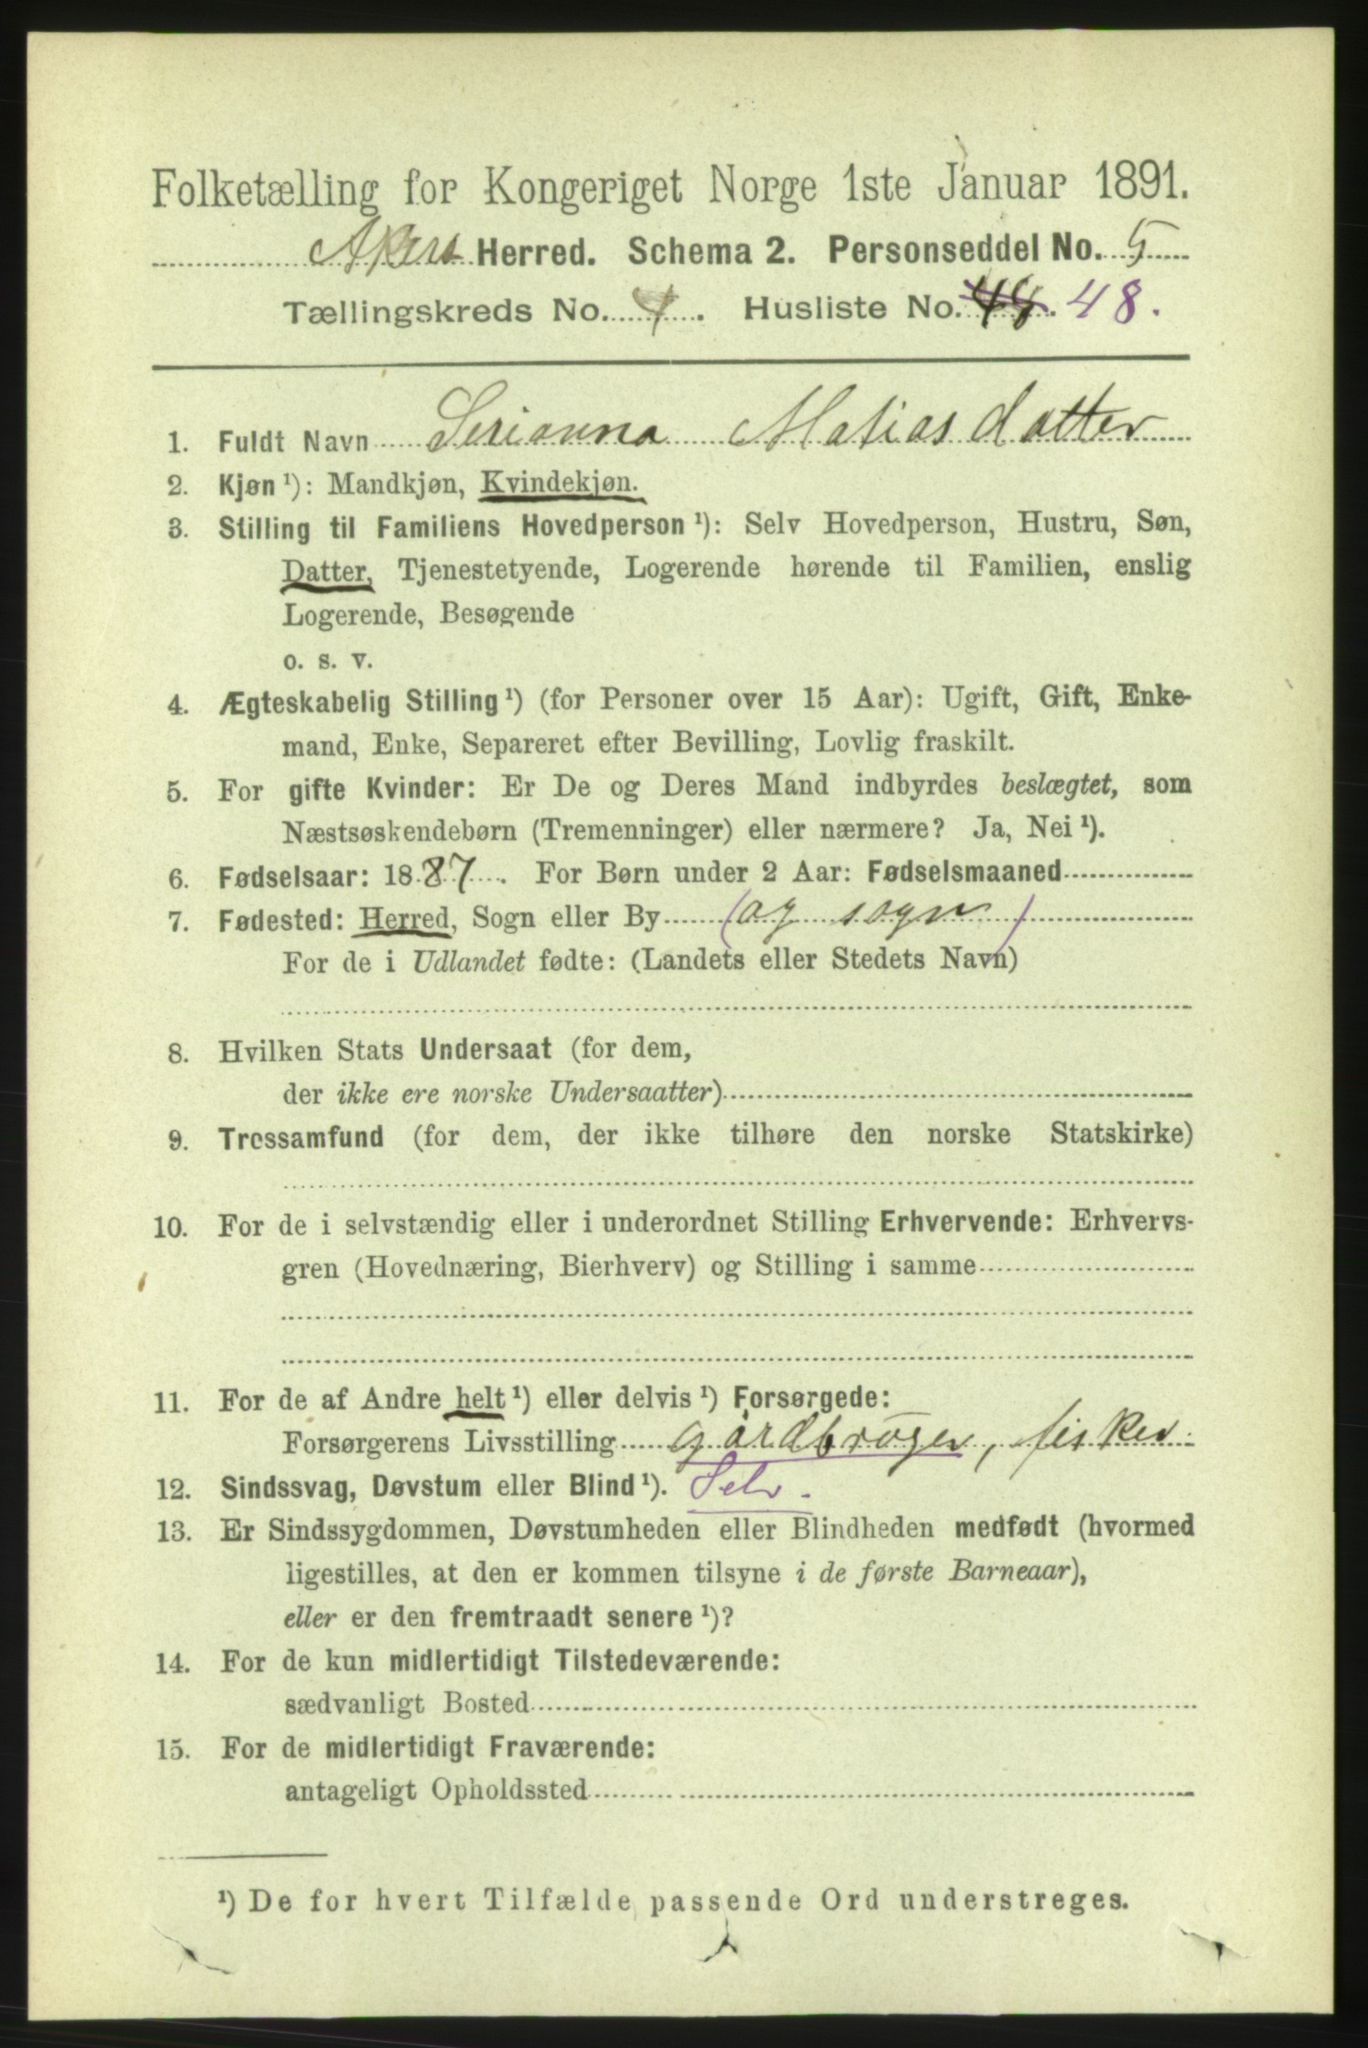 Folketælling for Kongeriget Norge 1ste Januar 1891.
Akerø Herred. Schema 2. Personseddel No. 5
Tællingskreds No. 4. Husliste No. 48. 48.
1. Fuldt Navn Serianna Matiasdatter
2. Kjøn ¹): Mandkjøn, Kvindekjøn.
3. Stilling til Familiens Hovedperson ¹): Selv Hovedperson, Hustru, Søn,
Datter, Tjenestetyende, Logerende hørende til Familien, enslig
Logerende, Besøgende
o. s. v.
4. Ægteskabelig Stilling ¹) (for Personer over 15 Aar): Ugift, Gift, Enke-
mand, Enke, Separeret efter Bevilling, Lovlig fraskilt.
5. For gifte Kvinder: Er De og Deres Mand indbyrdes beslægtet, som
Næstsøskendebørn (Tremenninger) eller nærmere? Ja, Nei ¹).
6. Fødselsaar: 1887. For Børn under 2 Aar: Fødselsmaaned
7. Fødested: Herred, Sogn eller By (og sogn)
For de i Udlandet fødte: (Landets eller Stedets Navn)
8. Hvilken Stats Undersaat (for dem,
der ikke ere norske Undersaatter)
9. Trossamfund (for dem, der ikke tilhøre den norske Statskirke)
10. For de i selvstændig eller i underordnet Stilling Erhvervende: Erhvervs-
gren (Hovednæring, Bierhverv) og Stilling i samme
11. For de af Andre helt ¹) eller delvis ¹) Forsørgede:
Forsørgerens Livsstilling gårdbrûger, fisker
12. Sindssvag, Døvstum eller Blind ¹). Selv.
13. Er Sindssygdommen, Døvstumheden eller Blindheden medfødt (hvormed
ligestilles, at den er kommen tilsyne i de første Barneaar),
eller er den fremtraadt senere ¹)?
14. For de kun midlertidigt Tilstedeværende:
sædvanligt Bosted
15. For de midlertidigt Fraværende:
antageligt Opholdssted
¹) De for hvert Tilfælde passende Ord understreges.